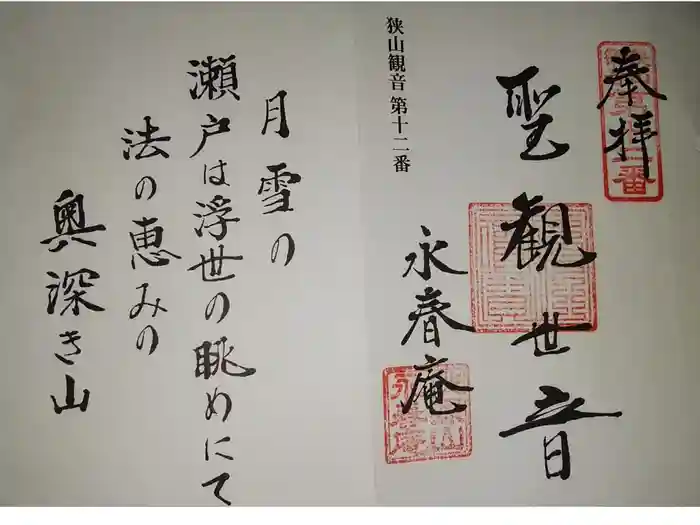 奉拝
聖観世音
永春庵
狭山観音 第十二番
月雪の
瀬戸は浮世の眺めにて
法の恵みの
奥深き山